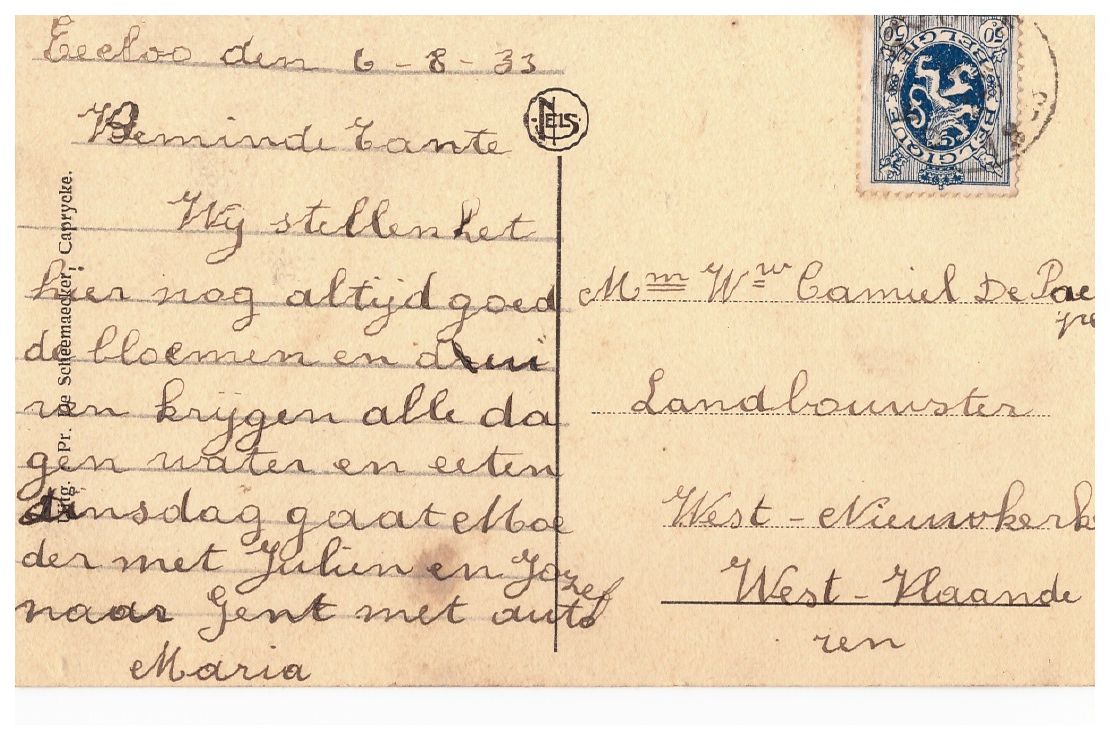 Eecloo den 6 - 8 - 33
Beminde Tante
Wij stellen het
hier nog altijd goed
de bloemen en drui
ven krijgen alle da
gen water en eeten
dinsdag gaat Moe
der met Julien en Jozef
naar Gent met auto
Maria
Uitg. Pr. De Scheemaecker, Caprycke.
NELS
50 50
BELGIE BELGIQUE
Mm Wwe Camiel De Pae
pe
Landbouwster
West - Nieuwkerk
West - Vlaande
ren